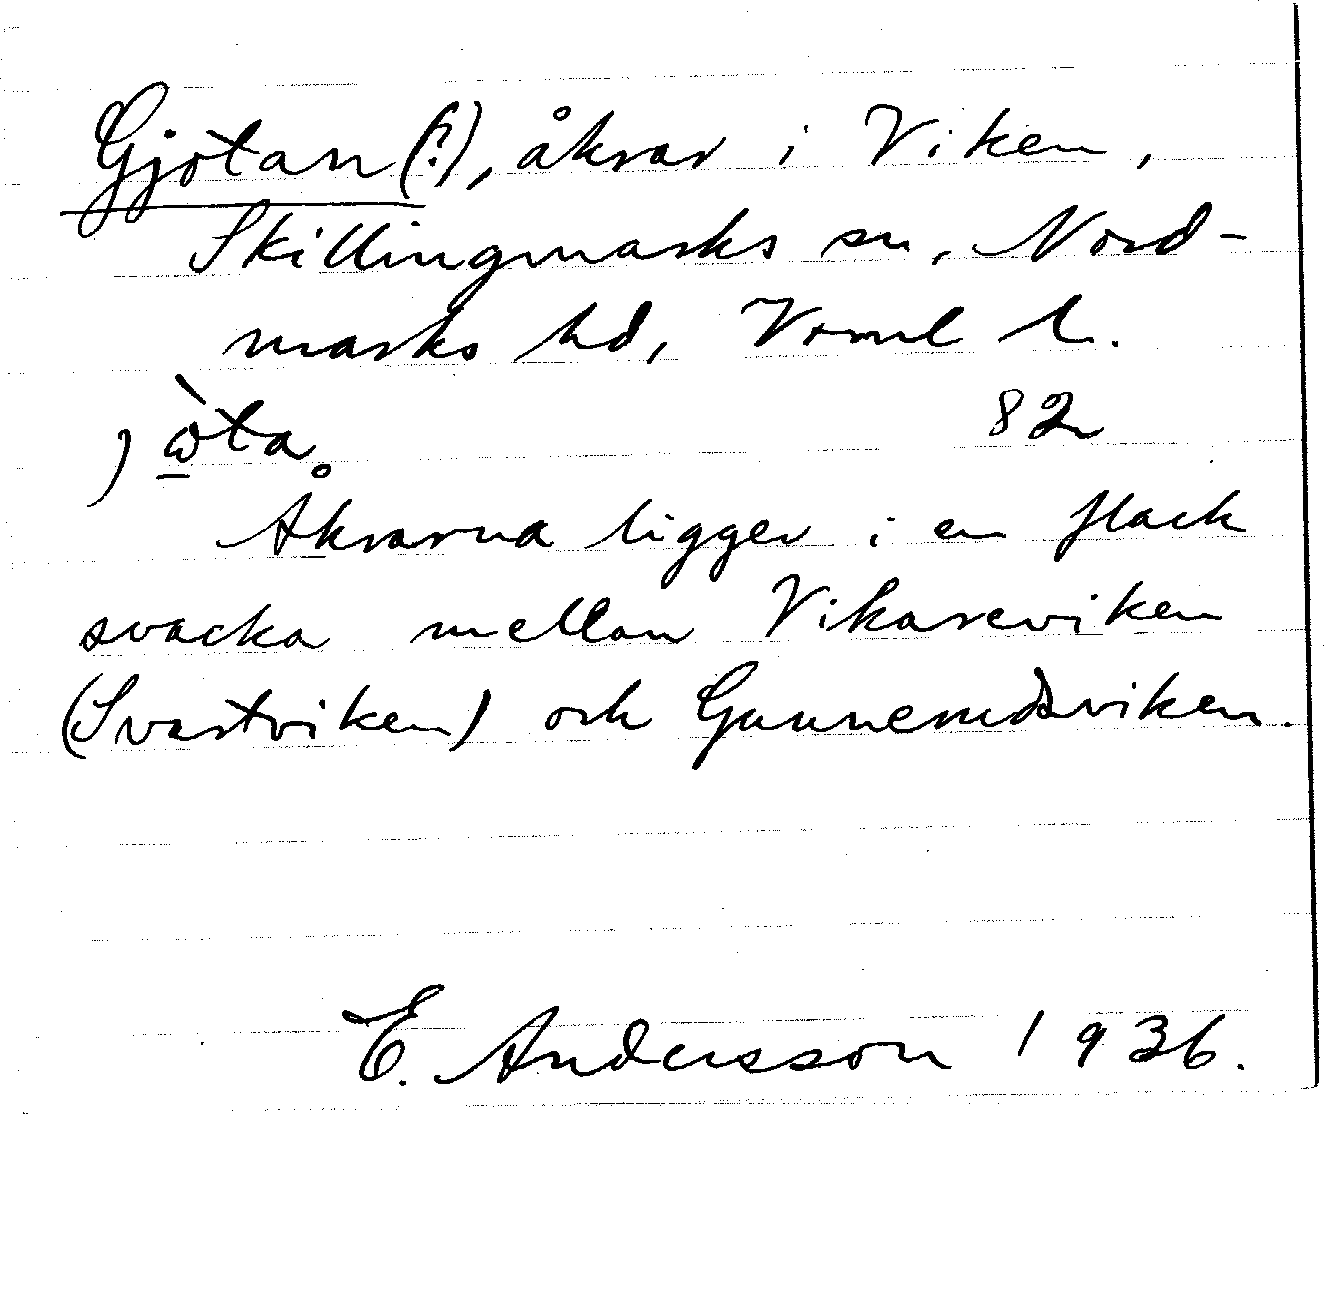 Gjötan (?), åkrar i Viken,
Skillingmarks sn, Nord-
marks hd, Vrml l.
j ὼ̲ta 82
Åkrarna ligger i en flack
svacka mellan Vikareviken
(Svartviken) och Gunnerudsviken.
E. Andersson 1936.